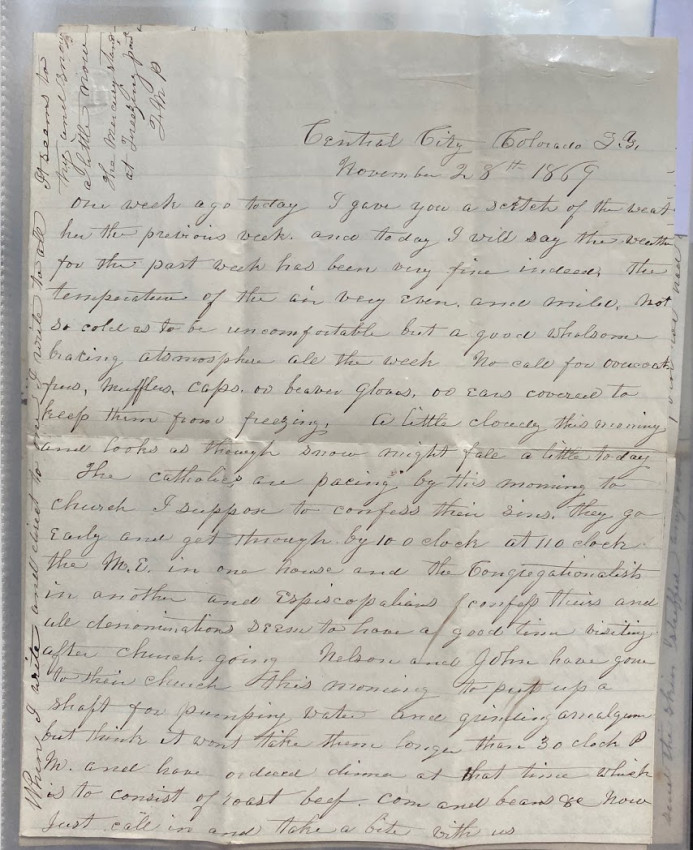 Central City Colorado T.y.
November 28th 1869
one week ago today I gave you a scetch of the weat
her the previous week. and today I will say the weath
for the past week has been very fine indeed, the
temperature of the air very even. and mild, not
so cold as to be uncomfortable but a good wholsome
bracing atsmosphere all the week No call for overcoat
furs, muffles, caps. or beaver gloves, or ears covered to
keep them from freezing, a little cloudy this morning
and looks as though snow might fall a little today
The catholics are pacing by this morning to
church I suppose to confess their sins, they go
Early and get through by 10 O clock at 11 O clock
the M.E. in one house and the Congregationalists
in another and Espiscopalians confess theirs and
all denominations seem to have a good time visiting
after church. going Nelson and John have gone
to their church this morning to put up a
shaft for pumping water and grinding amalgum
but think it wont take them longer than 3 O clock P
M. and have ordered dinner at that time which
is to consist of roast beef. corn and beans &c Now
Just call in and take a bite with us
When I write and direct to one I write to all
It seems to
try and snow
a little now
The Mercury stands
at Freezing point